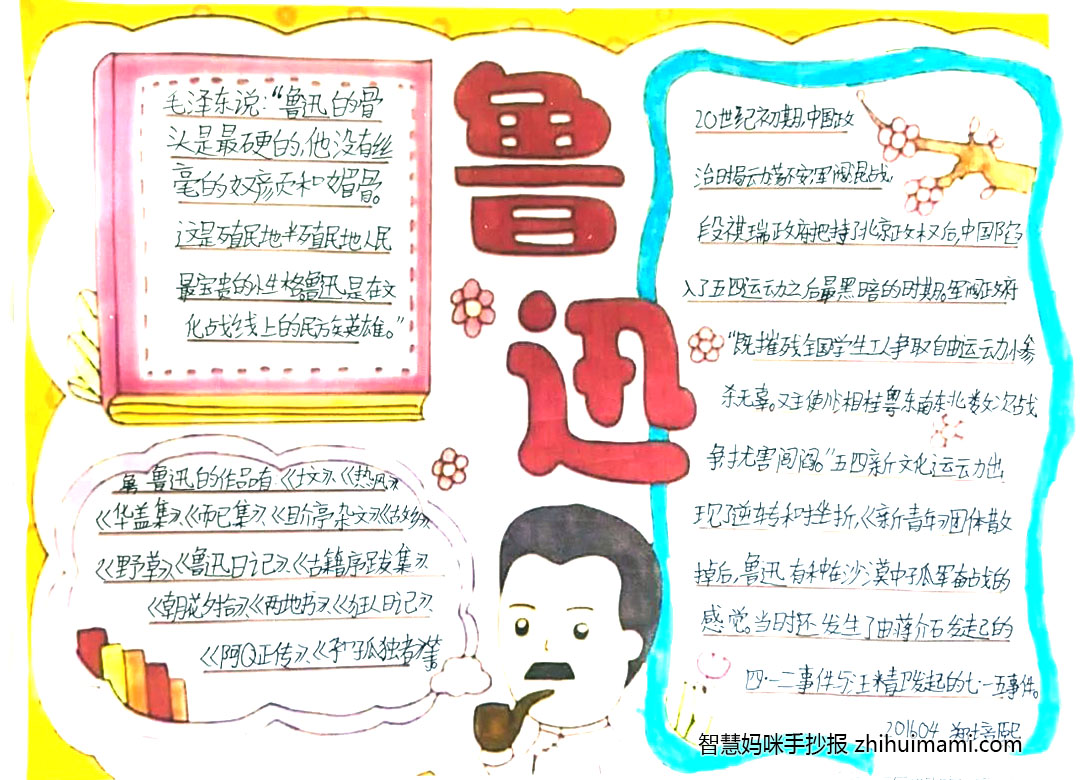 毛泽东说:“鲁迅的骨
头是最硬的,他没有丝
毫的奴颜和媚骨。
这是殖民地半殖民地人民
最宝贵的性格。鲁迅是在文
化战线上的民族英雄。”
鲁
迅
鲁迅的作品有:《坟》、《热风》
《华盖集》、《而已集》、《且介亭杂文》《故乡》
《野草》、《鲁迅日记》、《古籍序跋集》、
《朝花夕拾》、《两地书》、《狂人日记》、
《阿Q正传》、《和孤独者》等
20世纪初期,中国政
治时局动荡不安,军阀混战,
段祺瑞政府把持了北京政权后,中国陷
入了五四运动之后最黑暗的时期。军阀政府
“既摧残全国学生工人争取自由运动,惨
杀无辜。又主使川湘桂粤东南东北数次战
争,扰害闾阎。”五四新文化运动出
现了逆转和挫折,《新青年》团体散
掉后,鲁迅有种在沙漠中孤军奋战的
感觉。当时还发生了由蒋介石发起的
四·一二事件与汪精卫发起的七一五事件。
2016.04
智慧妈咪手抄报 zhihuimami.com